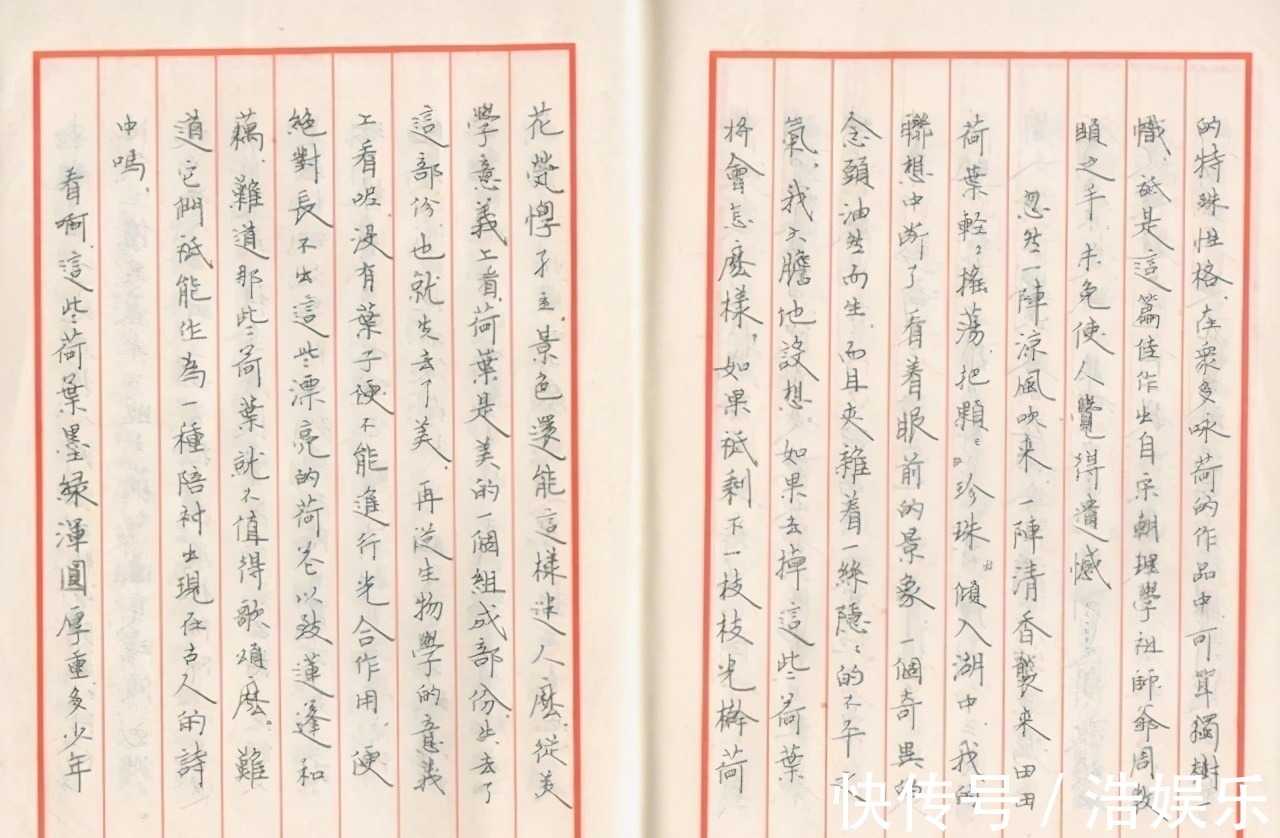 的特殊性格.在衆多咏荷的作品中可单獨樹一
幟.祇是這篇佳作出自宋朝理學祖師爺周敦
頤之手.未免使人覺得遺憾
忽然一陣凉風吹来.一陣清香襲来.田田
荷葉輕輕搖荡.把顆顆珍珠傾入湖中.我的
聯想中断了.看着眼前的景象.一個奇異的
念頭油然而生.而且夾雜着一絲隱隱的不平之
氣.我大膽地設想.如果去掉這些荷葉
将會怎麽樣,如果祇剩下一枝枝光桿荷
花.景色還能這樣迷人麽.從美
學意義上看.荷葉是美的一個組成部份.失去了
這部份也就失去了美.再從生物學的意義
上看呢.没有葉子便不能進行光合作用.便
絶對長不出這些漂亮的荷花以致蓮蓬和
藕.難道那些荷葉就不值得歌頌麽.難
道它們祇能作為一種陪衬出現在古人的詩
中嗎.
看啊.這些荷葉墨緑渾圓厚重.多少年
快传号/浩娱乐